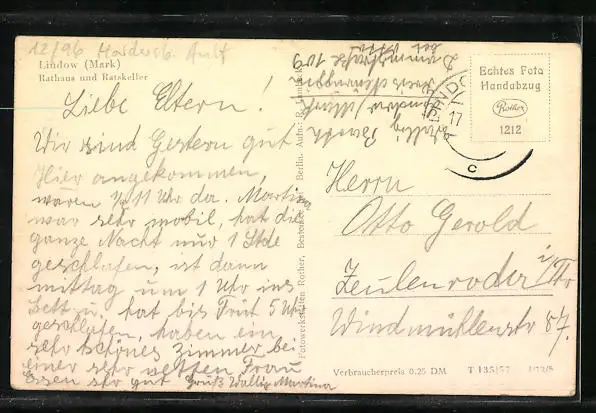 12/96
Lindow (Mark)
Rathaus und Ratskeller
Liebe Eltern!
Wir sind Gestern gut
Hier angekommen,
waren 1/2 11 Uhr da. Martina
war sehr mobil, hat die
ganze Nacht nur 1 Stde
geschlafen, ist dann
mittag um 1 Uhr ins
Bett u. hat bis Früt 5 Uhr
geschlafen, haben ein
sehr schönes zimmer bei
einer sehr netten Frau
Essen sehr gut Gruß Wally Martina
Fotowerkstätten Rother, Berlin. Aufn.:
Wally
Lindow/Mark
109
LINDOW
17
c
Echtes Foto
Handabzug
Rother
1212
Herrn
Otto Gerold
Zeulenroda i/Th
Windmühlenstr 87.
Verbraucherpreis 0.25 DM T 135/57